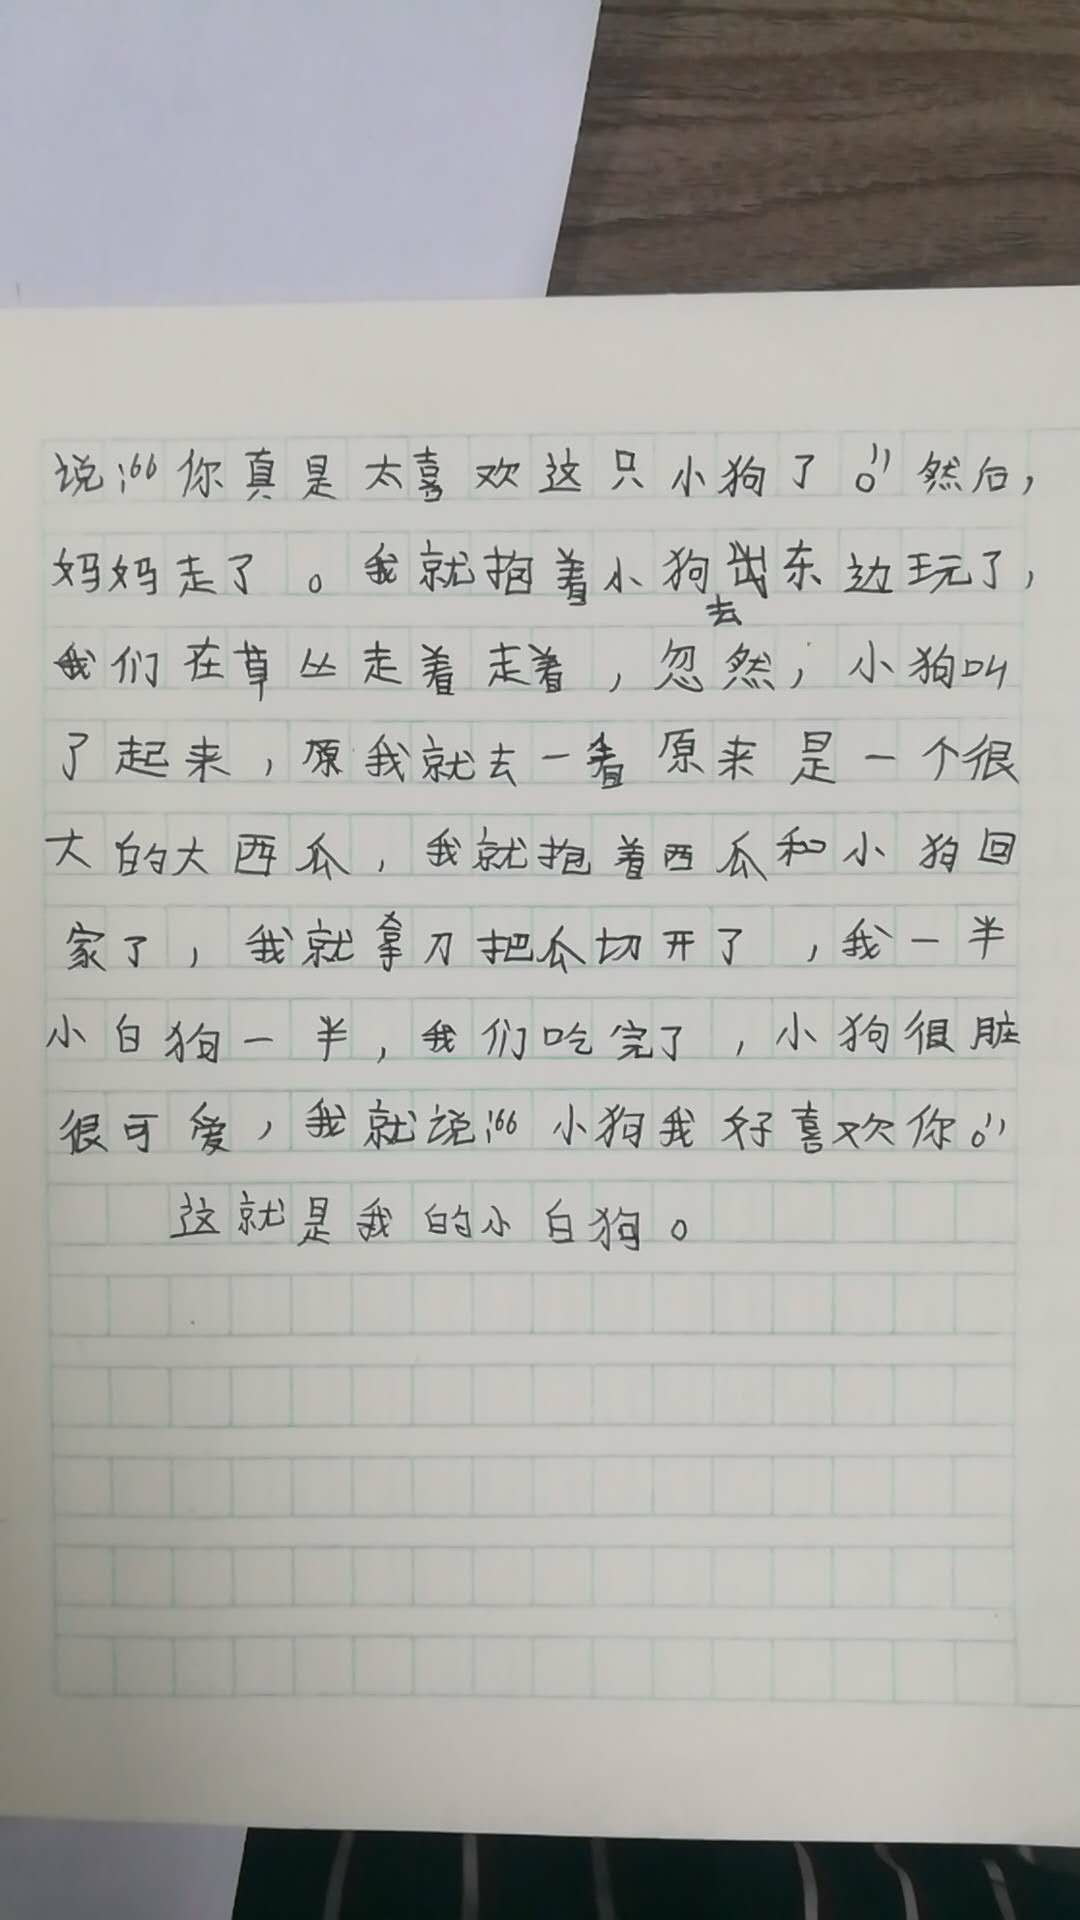 说:“你真是太喜欢这只小狗了。”然后,
妈妈走了。我就抱着小狗去东边玩了,
我们在草丛走着走着,忽然,小狗叫
了起来,原我就去一看原来是一个很
大的大西瓜,我就抱着西瓜和小狗回
家了,我就拿刀把瓜切开了,我一半
小白狗一半,我们吃完了,小狗很脏
很可爱,我就说:“小狗我好喜欢你。”
这就是我的小白狗。